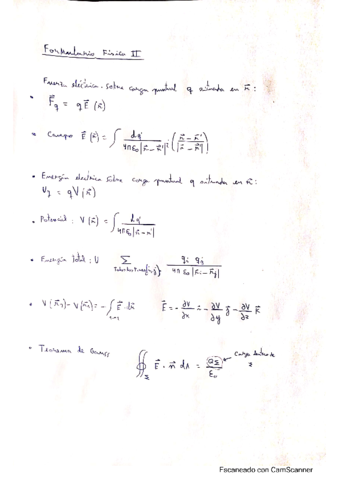 Formulario Física II
Fuerza eléctrica sobre carga puntual q situada en r⃗ :
• F⃗q = q E⃗ (r⃗)
• Campo E⃗ (r⃗) = ∫ dq' / 4πε₀|r⃗ - r⃗'|² ( r⃗ - r⃗' / |r⃗ - r⃗'| )
• Energía eléctrica sobre carga puntual q situada en r⃗ :
U_q = q V (r⃗)
• Potencial : V (r⃗) = ∫ dq' / 4πε₀|r⃗ - r⃗'|
• Energía total : U ∑ qi qj / 4πε₀ |r⃗i - r⃗j|
• V(r⃗₂) - V(r⃗₁) = - ∫ E⃗ · dr⃗ E⃗ = - ∂V/∂x - ∂V/∂y j⃗ - ∂V/∂z k⃗
• Teorema de Gauss ∯_Σ E⃗ · n⃗ dA = Q_Σ / ε₀ Carga dentro de Σ
Escaneado con CamScanner